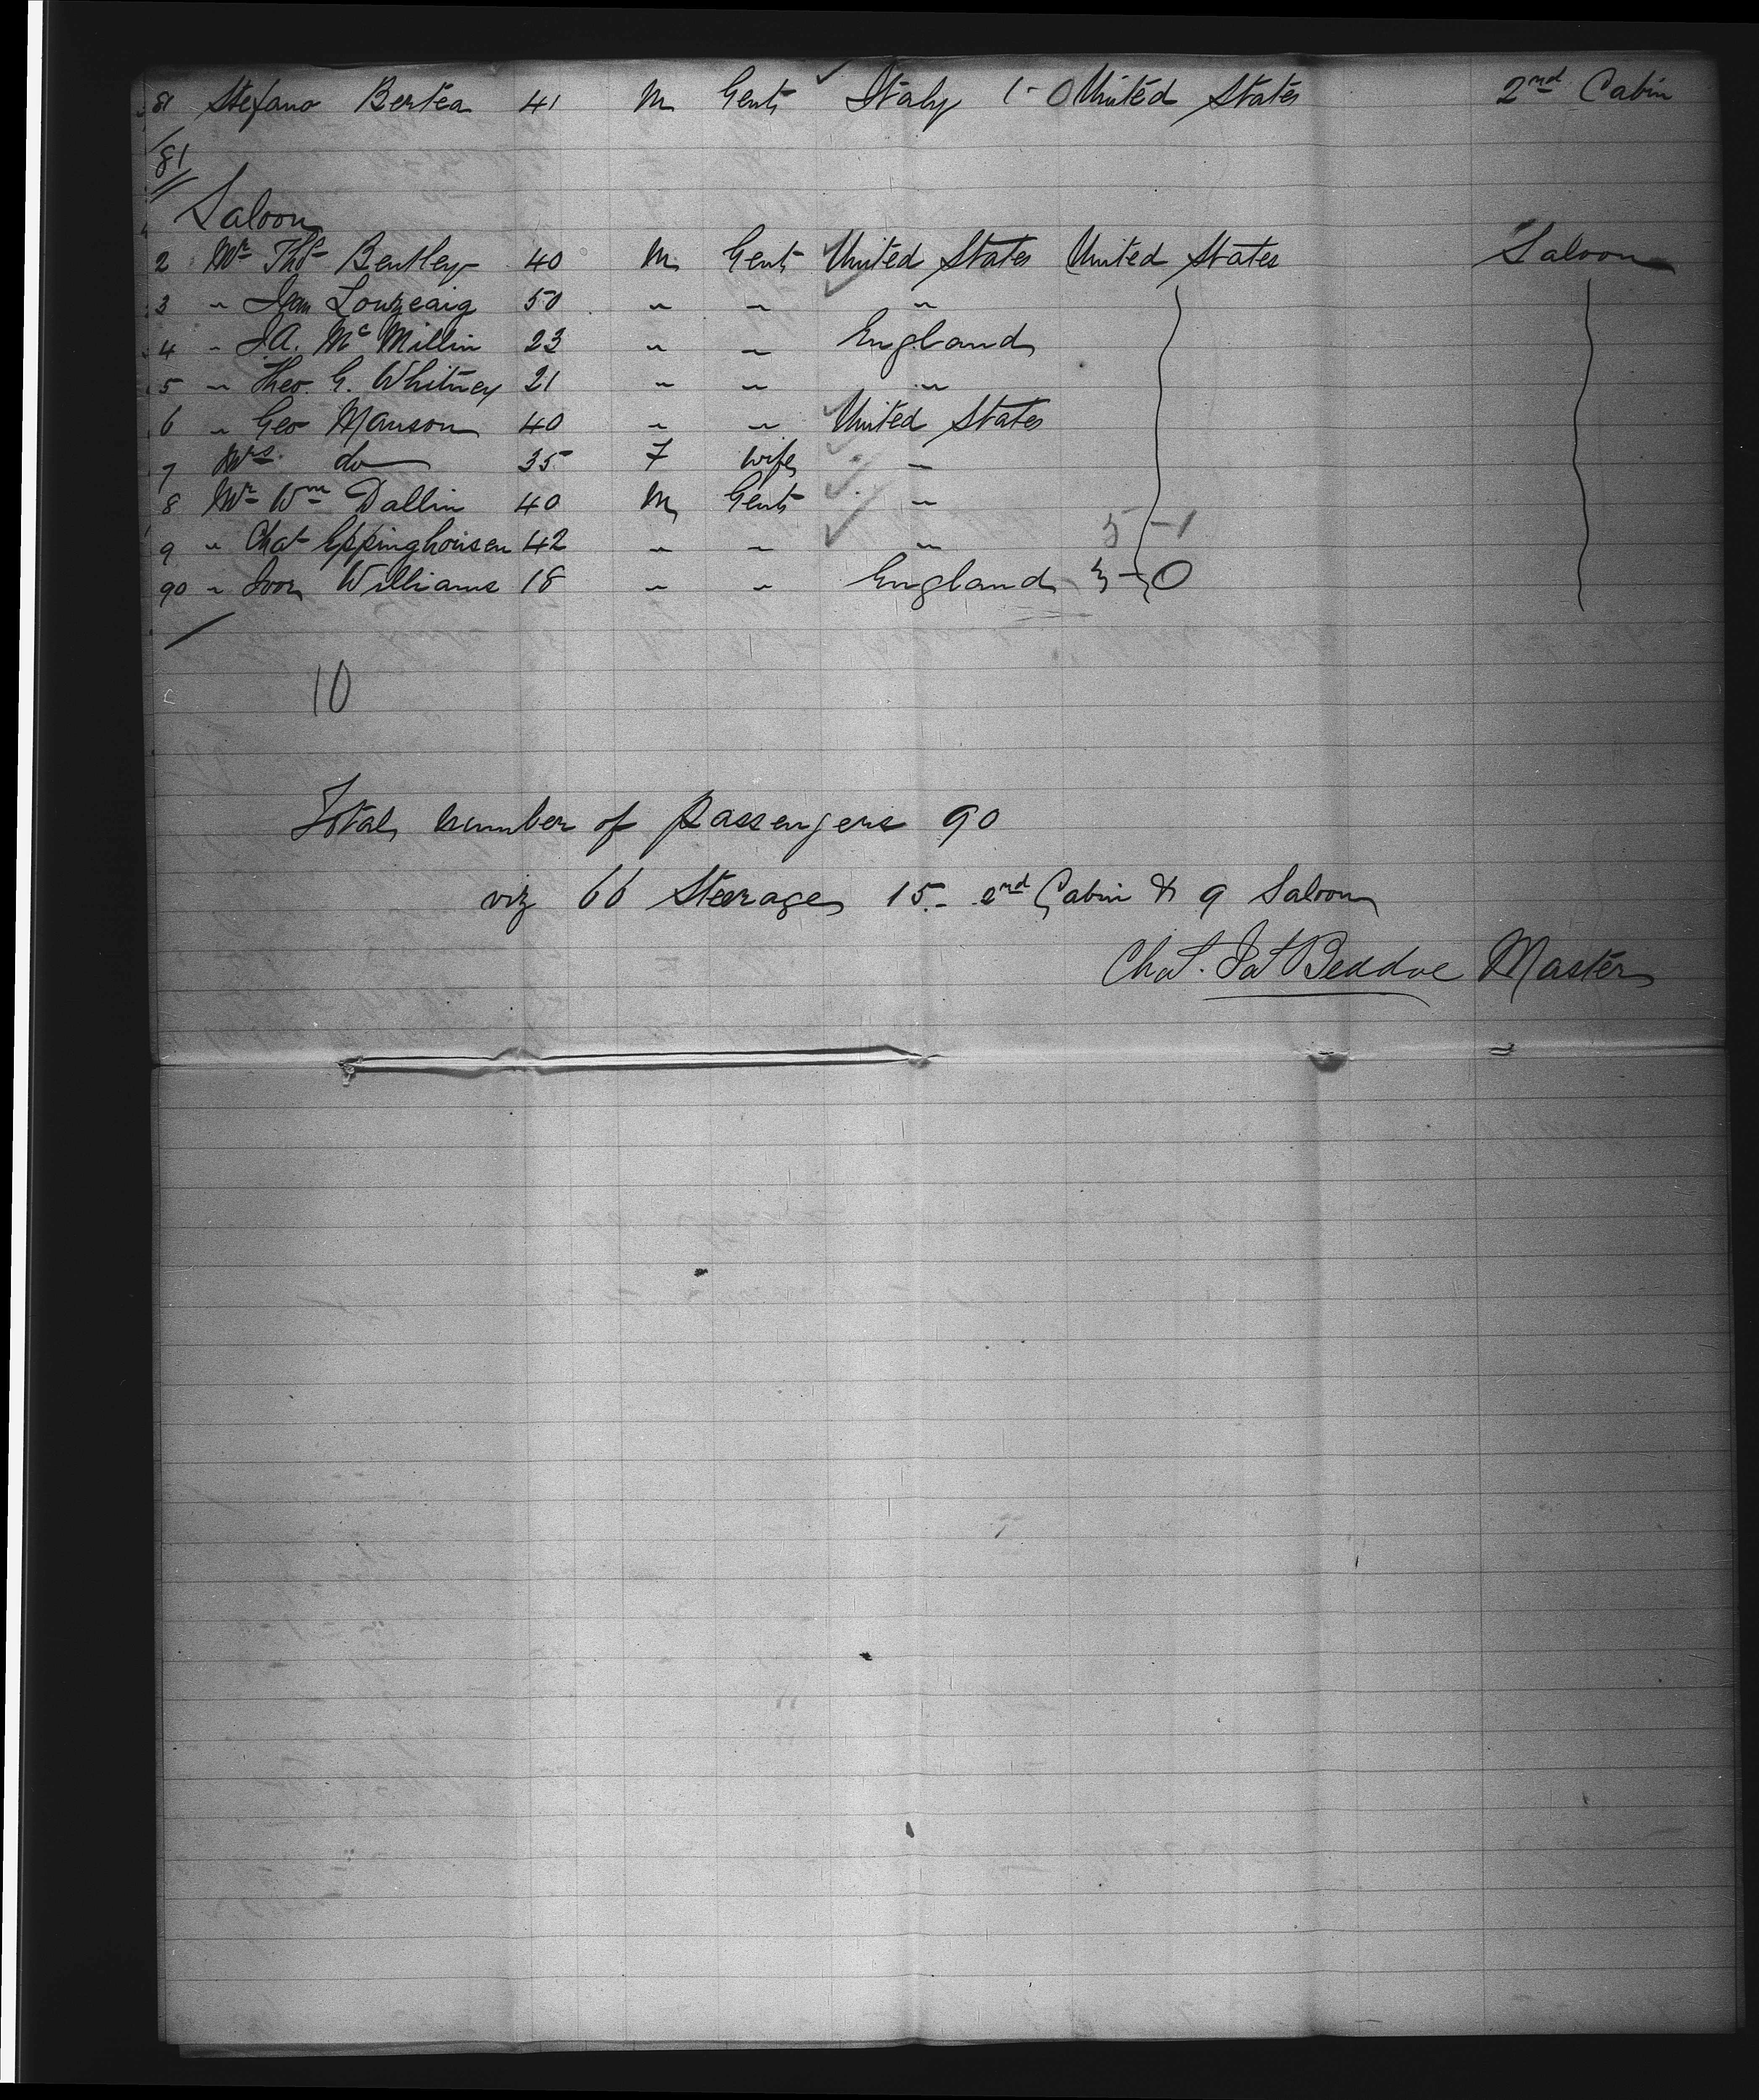 81 Stefano Bertea 41 M Gent Italy 1-0 United States 2nd Cabin
81
Saloon
2 Mr Thos Bentley 40 M Gent United States United States Saloon
3 " 50 " " "
4 " J.A. McMillin 23 " " England
5 " Theo. G. Whitney 21 " " "
6 " Geo Manson 40 " " United States
7 Mrs. do 35 F wife "
8 Mr Wm Dallin 40 M Gent "
9 " Chas Eppinghousen 42 " " " 5-1
90 " Ivor Williams 18 " " England 3-0
10
Total number of passengers 90
viz 66 Steerage 15- 2nd Cabin & 9 Saloon
Chas. Jas Beddoe Master